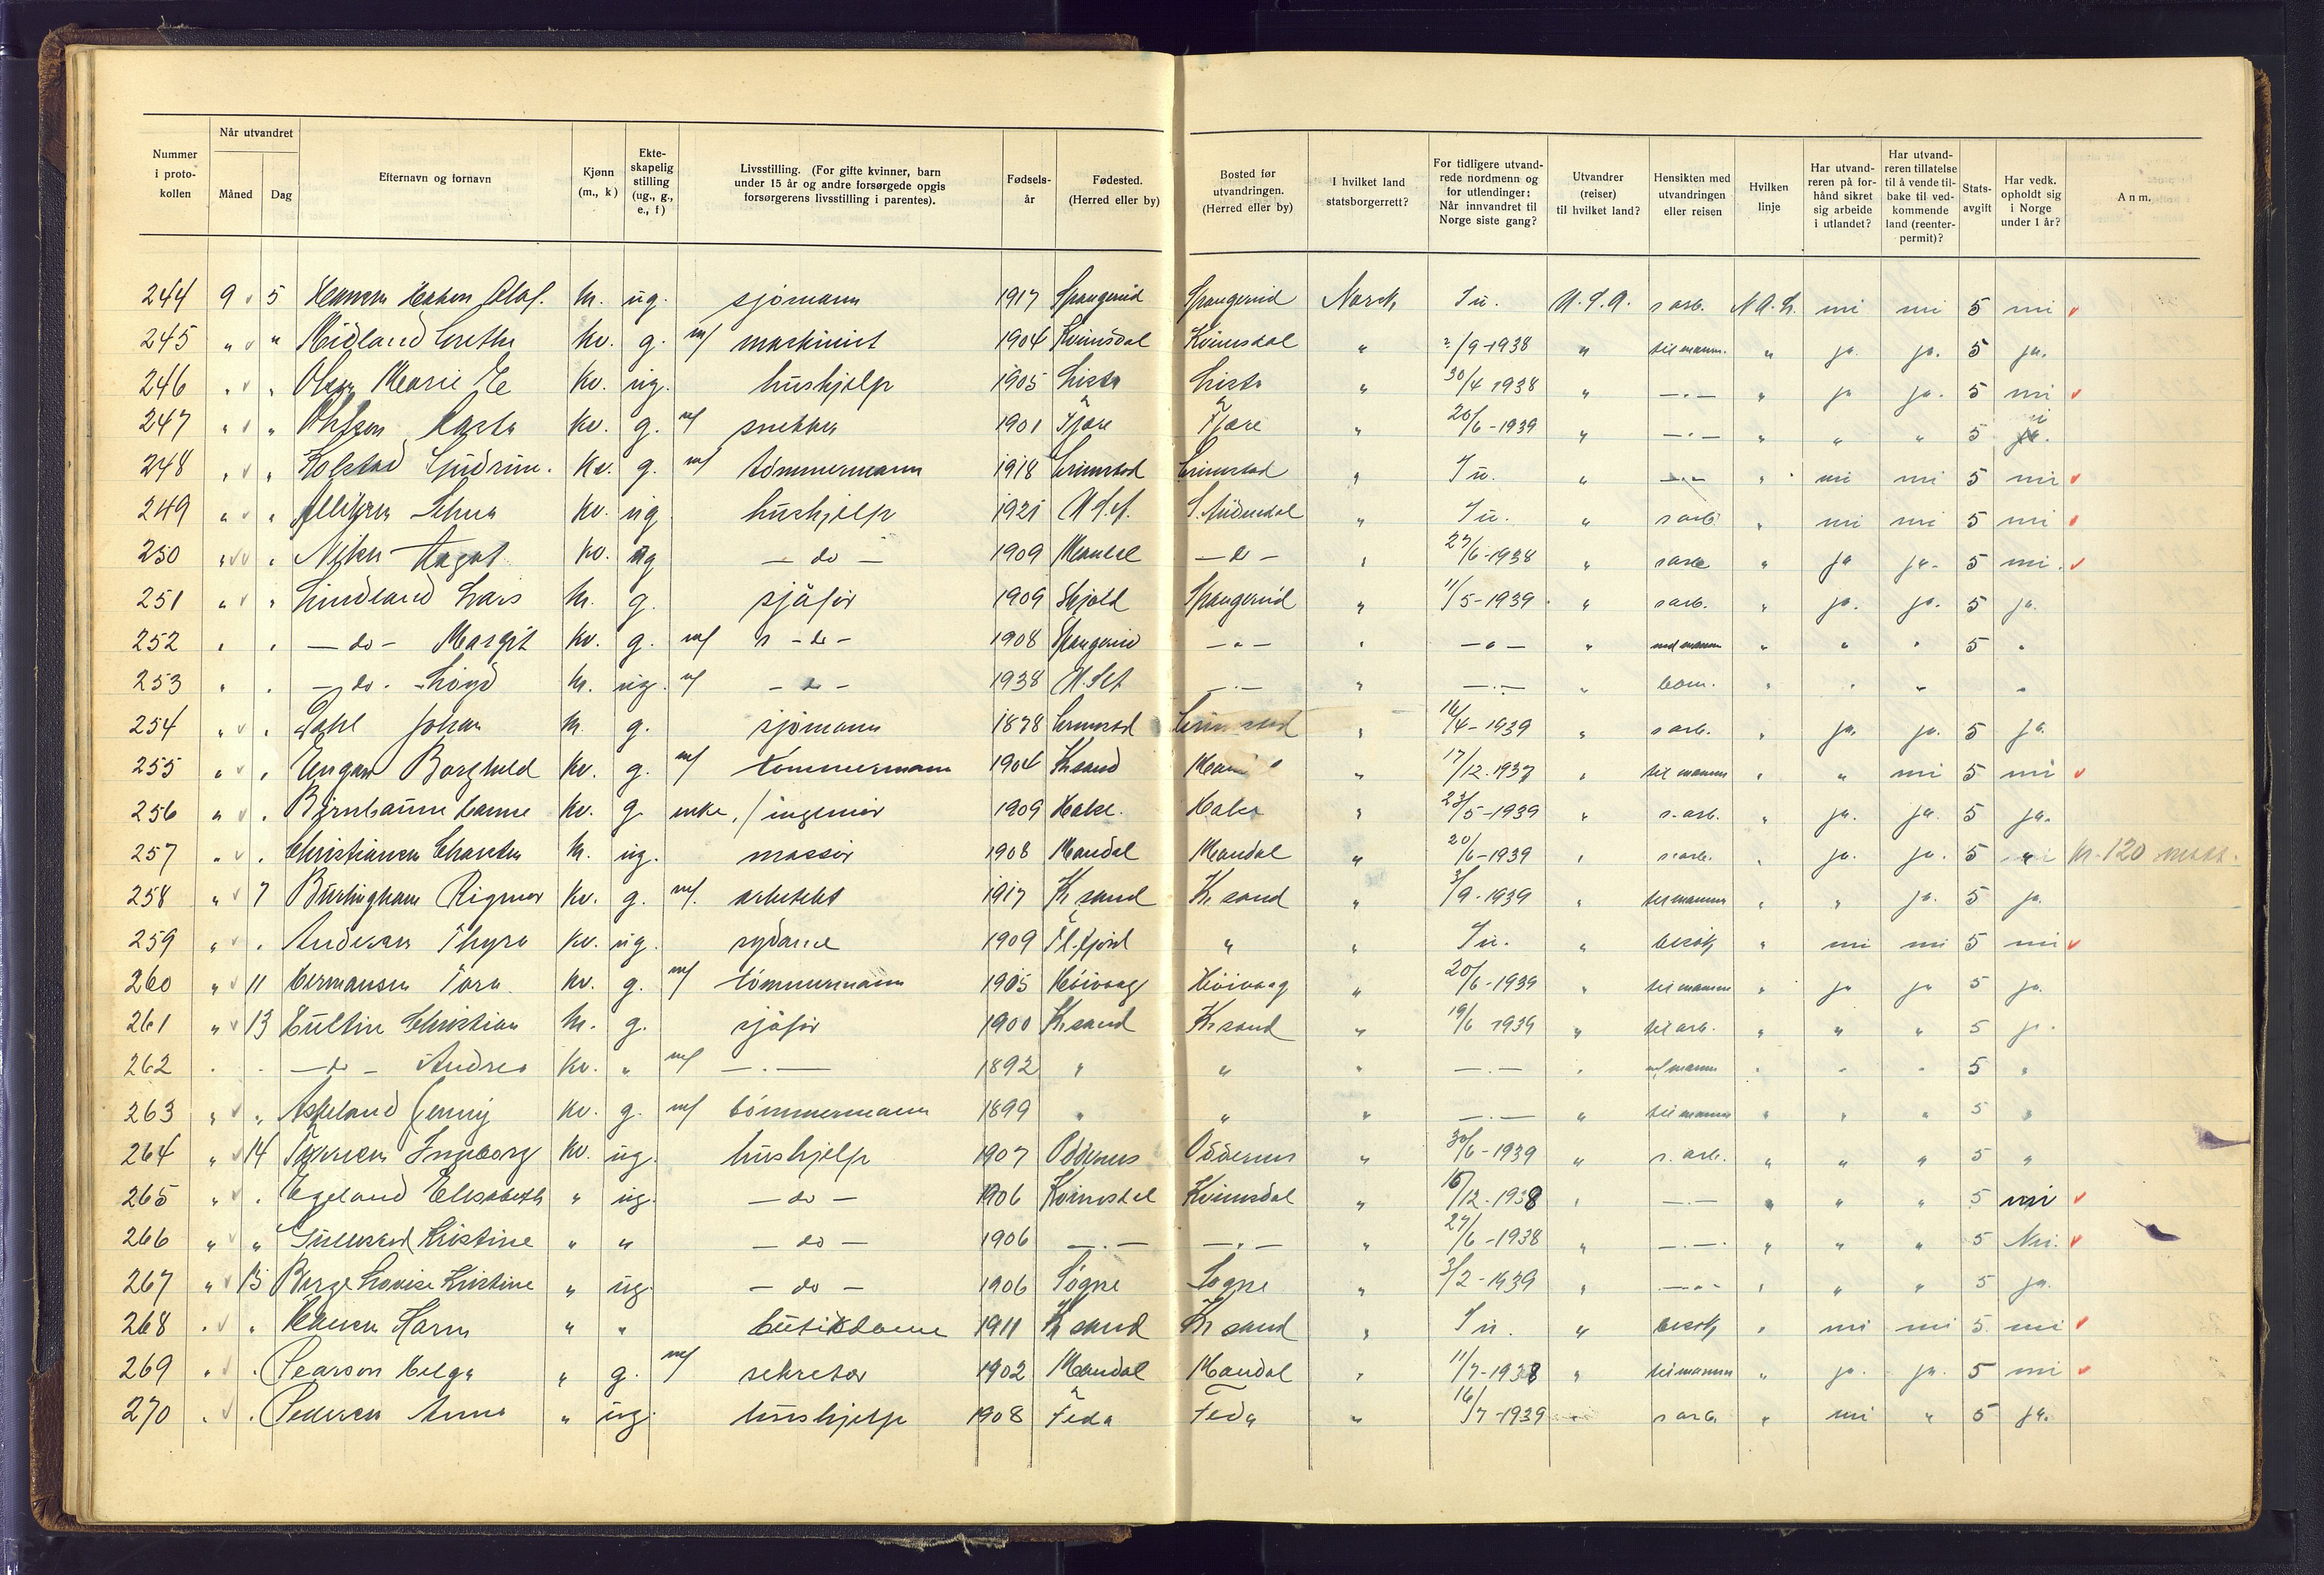 Nummer i protokollen | Når utvandret Måned | Dag | Efternavn og fornavn | Kjønn (m., k) | Ekteskapelig stilling (ug., g., e., f) | Livsstilling. (For gifte kvinner, barn under 15 år og andre forsørgede opgis forsørgerens livsstilling i parentes). | Fødselsår | Fødested. (Herred eller by) | Bosted før utvandringen. (Herred eller by) | I hvilket land statsborgerrett? | For tidligere utvandrede nordmenn og for utlendinger: Når innvandret til Norge siste gang? | Utvandrer (reiser) til hvilket land? | Hensikten med utvandringen eller reisen | Hvilken linje | Har utvandreren på forhånd sikret sig arbeide i utlandet? | Har utvandreren tillatelse til å vende tilbake til vedkommende land (reenterpermit)? | Statsavgift | Har vedk. opholdt sig i Norge under 1 år? | Anm.
244 9 5 Hansen Hakon Olaf. M. ug. sjömann 1917 Spangereid Spangereid Norsk I u. U.S.A. s arb. N.A.L. nei nei 5 nei
245 " " Midland Grethe Kv. g. m/ maskinist 1904 Kvinesdal Kvinesdal " ?/9-1938 " til mann. " ja. ja. 5 ja.
246 " " Olsen Marie Kv. ug. hushjelp 1905 Lista Lista " 30/4 1938 " —"— " ja ja. 5 nei
247 " " Kv. g. m/ snekker 1901 Fjære Fjære " 20/6-1939 " —"— " " " 5
248 " " Kolstad Gudrun. Kv. g. m/ tömmermann 1918 Grimstad Grimstad " I u. " —"— " nei nei 5 nei
249 " " Selma Kv. ug hushjelp 1921 U.S.A. S. Audnedal " I u. " s arb " nei nei 5 nei
250 " " Aagot Kv. ug — do — 1909 Mandal — do — " 27/6-1938 " s arb " ja ja. 5 nei.
251 " " Lindland Lars M. g. sjåför 1909 Skjold Spangereid " 11/5-1939 " s arb. " ja. ja. 5 ja.
252 " " — do — Margit Kv. g. m/ — do — 1908 Spangereid — " — " — " — " med mann " " " 5 "
253 " " — do. Loyd M. ug. m/ — do — 1938 U.S.A — " — " — " — " barn. " " " "
254 " " Dahl Johan M. g. sjömann 1878 Grimstad Grimstad " 14/4-1939 s arb. " ja. ja. 5 ja.
255 " " Borghild Kv. g. m/ tömmermann 1904 Kr sand " 17/12.1937 " til mann " " nei 5 nei
256 " " Kv. g. enke / ingeniör 1909 " 23/5-1939 s. arb. " ja. ja. 5 ja.
257 " " Christiansen M. ug. massör 1908 Mandal Mandal " 20/6-1939 " s arb. " ja. ja. 5 " kr. 120
258 " 7 Burlingham Rigmor Kv. g. m/. arkitekt 1917 Kr sand Kr sand " 3/9-1939 " til mann " " ja. 5 ja.
259 " " Andersen Thyra Kv. ug. sydame 1909 Fl. fjord " " I u. " besök " nei nei 5 nei
260 " 11 Hermansen Tora Kv. g. m/ tömmermann 1905 Höivaag Höivaag " 20/6-1939 " til mann " ja ja 5 ja.
261 " 13 Christian M. g. sjåför 1900 Kr sand Kr sand " 19/6 1939 " til arb. " " " 5 ja.
262 " " — do — Andrea Kv. " m/ — " — 1892 " " " — " — " m/ mann " " " 5 "
263 " " Askeland Jenny Kv. g. m/ tömmermann 1899 " " " — " — " til mann " " " 5 "
264 " 14 Ingeborg Kv. ug. hushjelp 1907 Oddernes Oddernes " 30/6-1939 " s. arb. " " " 5 "
265 " " Egeland Elisabeth " ug. — do — 1906 Kvinesdal Kvinesdal " 16/12.1938 " — " — " " " 5 nei
266 " " Kristine " " — do — 1906 — " — — " — " 27/6-1938 " — " — " " " 5 Nei.
267 " 15 Berge Lovise Kristine " ug. — do — 1906 Sögne Sogne " 3/2-1939 " — " — " " " 5 ja.
268 " " Hansen Karen " " butikdame 1911 Kr sand Kr sand " I u. " besök " nei nei 5 nei
269 " " Pearson Helga " g. m/ sekretær 1902 Mandal Mandal " 11/7-1938 " til mann " ja. ja. 5 nei
270 " " Pedersen Anna " ug. hushjelp 1908 Feda Feda " 16/7-1939 " s arb. " nei " 5 ja.